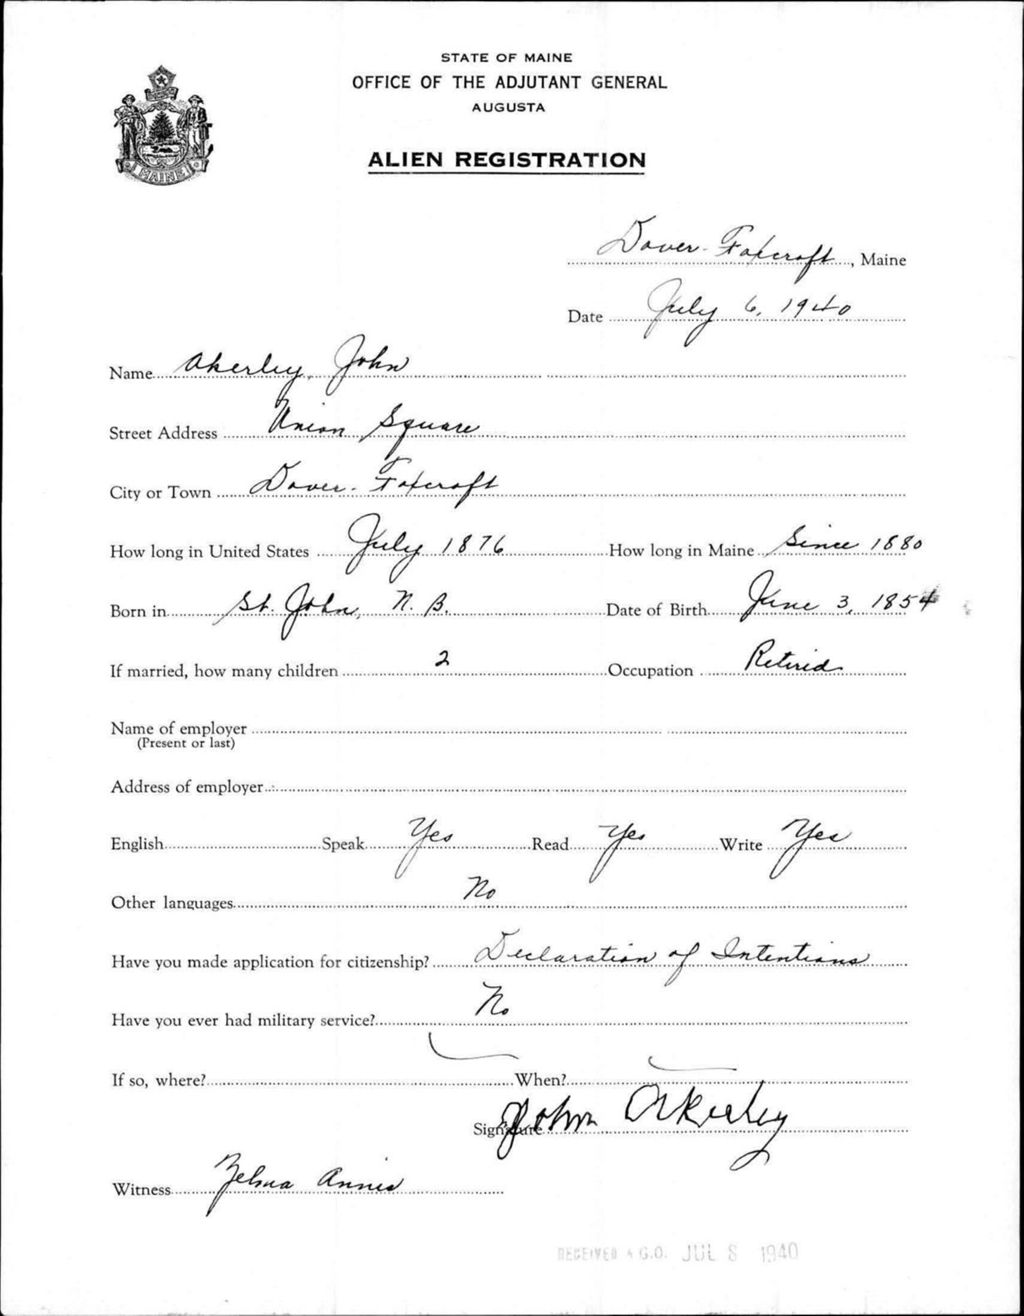 STATE OF MAINE
OFFICE OF THE ADJUTANT GENERAL
AUGUSTA
ALIEN REGISTRATION
MAINE
Dover-Foxcroft, Maine
Date July 6, 1940
Name Akerley, John
Street Address Union Square
City or Town Dover-Foxcroft
How long in United States July 1876 How long in Maine Since 1880
Born in St. John, N. B. Date of Birth June 3, 1854
If married, how many children 2 Occupation Retired
Name of employer
(Present or last)
Address of employer
English Speak Yes Read Yes Write Yes
Other languages No
Have you made application for citizenship? Declaration of Intentions
Have you ever had military service? No
If so, where? When?
Signature John Akerley
Witness Zelma Annis
RECEIVED A.G.O. JUL 8 1940